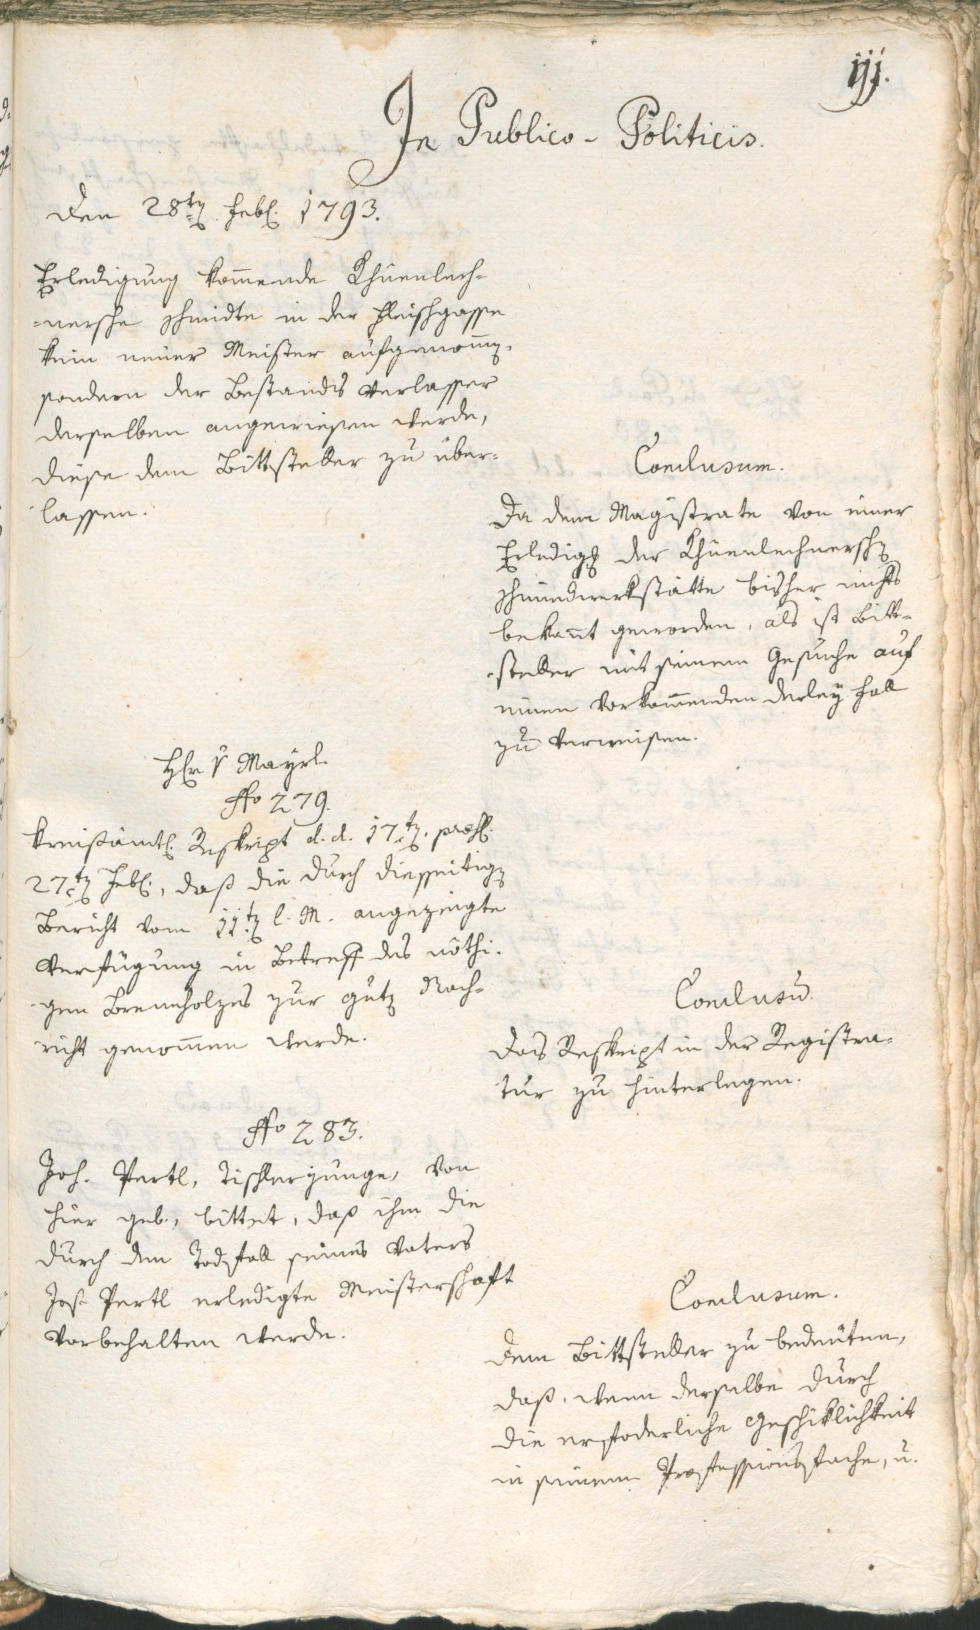 111.
In Publico-Politicis.
den 28tn Febr. 1793.
Erledigung kom̅ende Khuenlech-
-nersche Schmidte in der Fleischgasse
kein neuer Meister aufgenom̅en,
sondern der Bestands Verlasser
derselben angewiesen werde,
diese dem Bittsteller zu über-
lassen.
Conclusum.
Da dem Magistrate von einer
Erledigg der Khuenlechnerschen
Schmiedwerkstätte bisher nichts
bekan̅t geworden, als ist Bitt-
-steller mit seinem Gesuche auf
einen vorkom̅enden derley Fall
zu verweisen.
Hr v Mayrl.
No 279.
Kreisämtl. Reskript d. d. 17tn. praes.
27tn Febr., daß die durch diesseitign
Bericht vom 11tn l. M. angezeigte
Verfügung in Betreff des nöthi-
gen Brennholzes zur gutn Nach-
richt genom̅en werde.
Conclusū.
Das Reskript in der Registra-
tur zu hinterlegen.
No 283.
Joh. Pertl, Tischlerjunge, von
hier geb., bittet, daß ihm die
durch den Todfall seines Vaters
Jos. Pertl erledigte Meisterschaft
vorbehalten werde.
Conclusum.
Dem Bittsteller zu bedeuten,
daß, wenn derselbe durch
die erfoderliche Geschiklichkeit
in seinem Professionsfache, u.